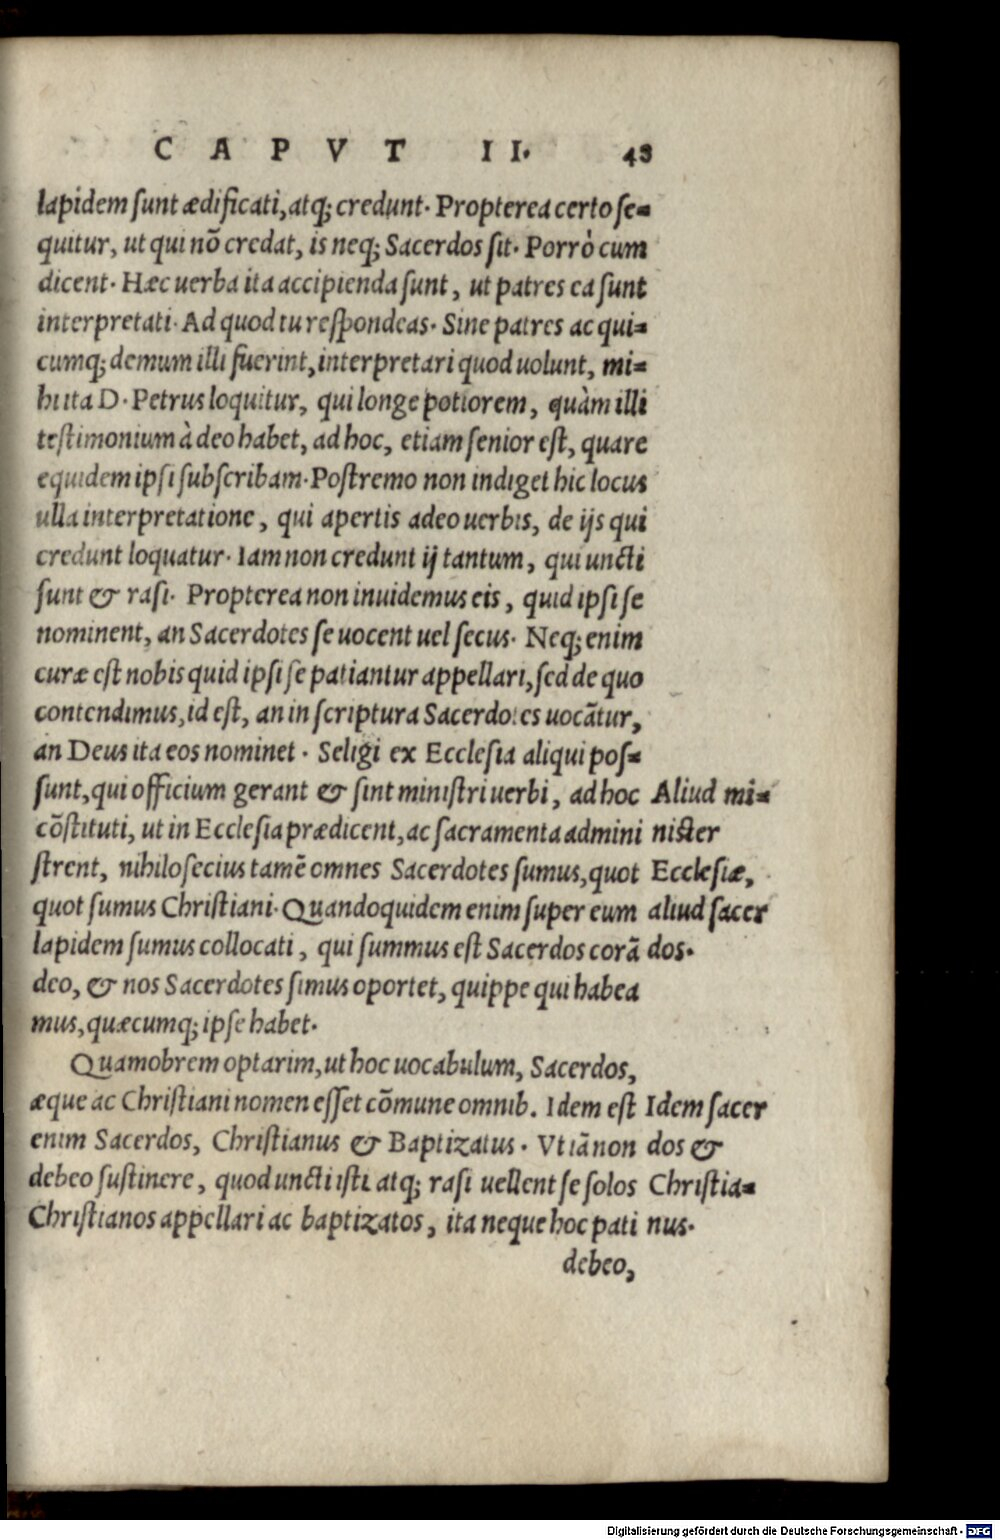 CAPVT II. 43
lapidem sunt ædificati, atq; credunt. Propterea certo se=
quitur, ut qui nõ credat, is neq; Sacerdos sit. Porrò cum
dicent. Hæc uerba ita accipienda sunt, ut patres ea sunt
interpretati. Ad quod tu respondeas. Sine patres ac qui=
cumq; demum illi fuerint, interpretari quod uolunt, mi=
hi ita D. Petrus loquitur, qui longe potiorem, quàm illi
testimonium à deo habet, ad hoc, etiam senior est, quare
equidem ipsi subscribam. Postremo non indiget hic locus
ulla interpretatione, qui apertis adeo uerbis, de ijs qui
credunt loquatur. Iam non credunt ij tantum, qui uncti
sunt & rasi. Propterea non inuidemus eis, quid ipsi se
nominent, an Sacerdotes se uocent uel secus. Neq; enim
curæ est nobis quid ipsi se patiantur appellari, sed de quo
contendimus, id est, an in scriptura Sacerdotes uocãtur,
an Deus ita eos nominet. Seligi ex Ecclesia aliqui pos=
sunt, qui officium gerant & sint ministri uerbi, ad hoc
cõstituti, ut in Ecclesia prædicent, ac sacramenta admini
strent, nihilo secius tamẽ omnes Sacerdotes sumus, quot
quot sumus Christiani. Quandoquidem enim super eum
lapidem sumus collocati, qui summus est Sacerdos corã
deo, & nos Sacerdotes simus oportet, quippe qui habea
mus, quæcumq; ipse habet.
Aliud mi=
nister
Ecclesiæ,
aliud sacer
dos.
Quamobrem optarim, ut hoc uocabulum, Sacerdos,
æque ac Christiani nomen esset cõmune omnib. Idem est
enim Sacerdos, Christianus & Baptizatus. Vt iã non
debeo sustinere, quod uncti isti atq; rasi uellent se solos
Christianos appellari ac baptizatos, ita neque hoc pati
Idem sacer
dos &
Christia=
nus.
debeo,
Digitalisierung gefördert durch die Deutsche Forschungsgemeinschaft - DFG